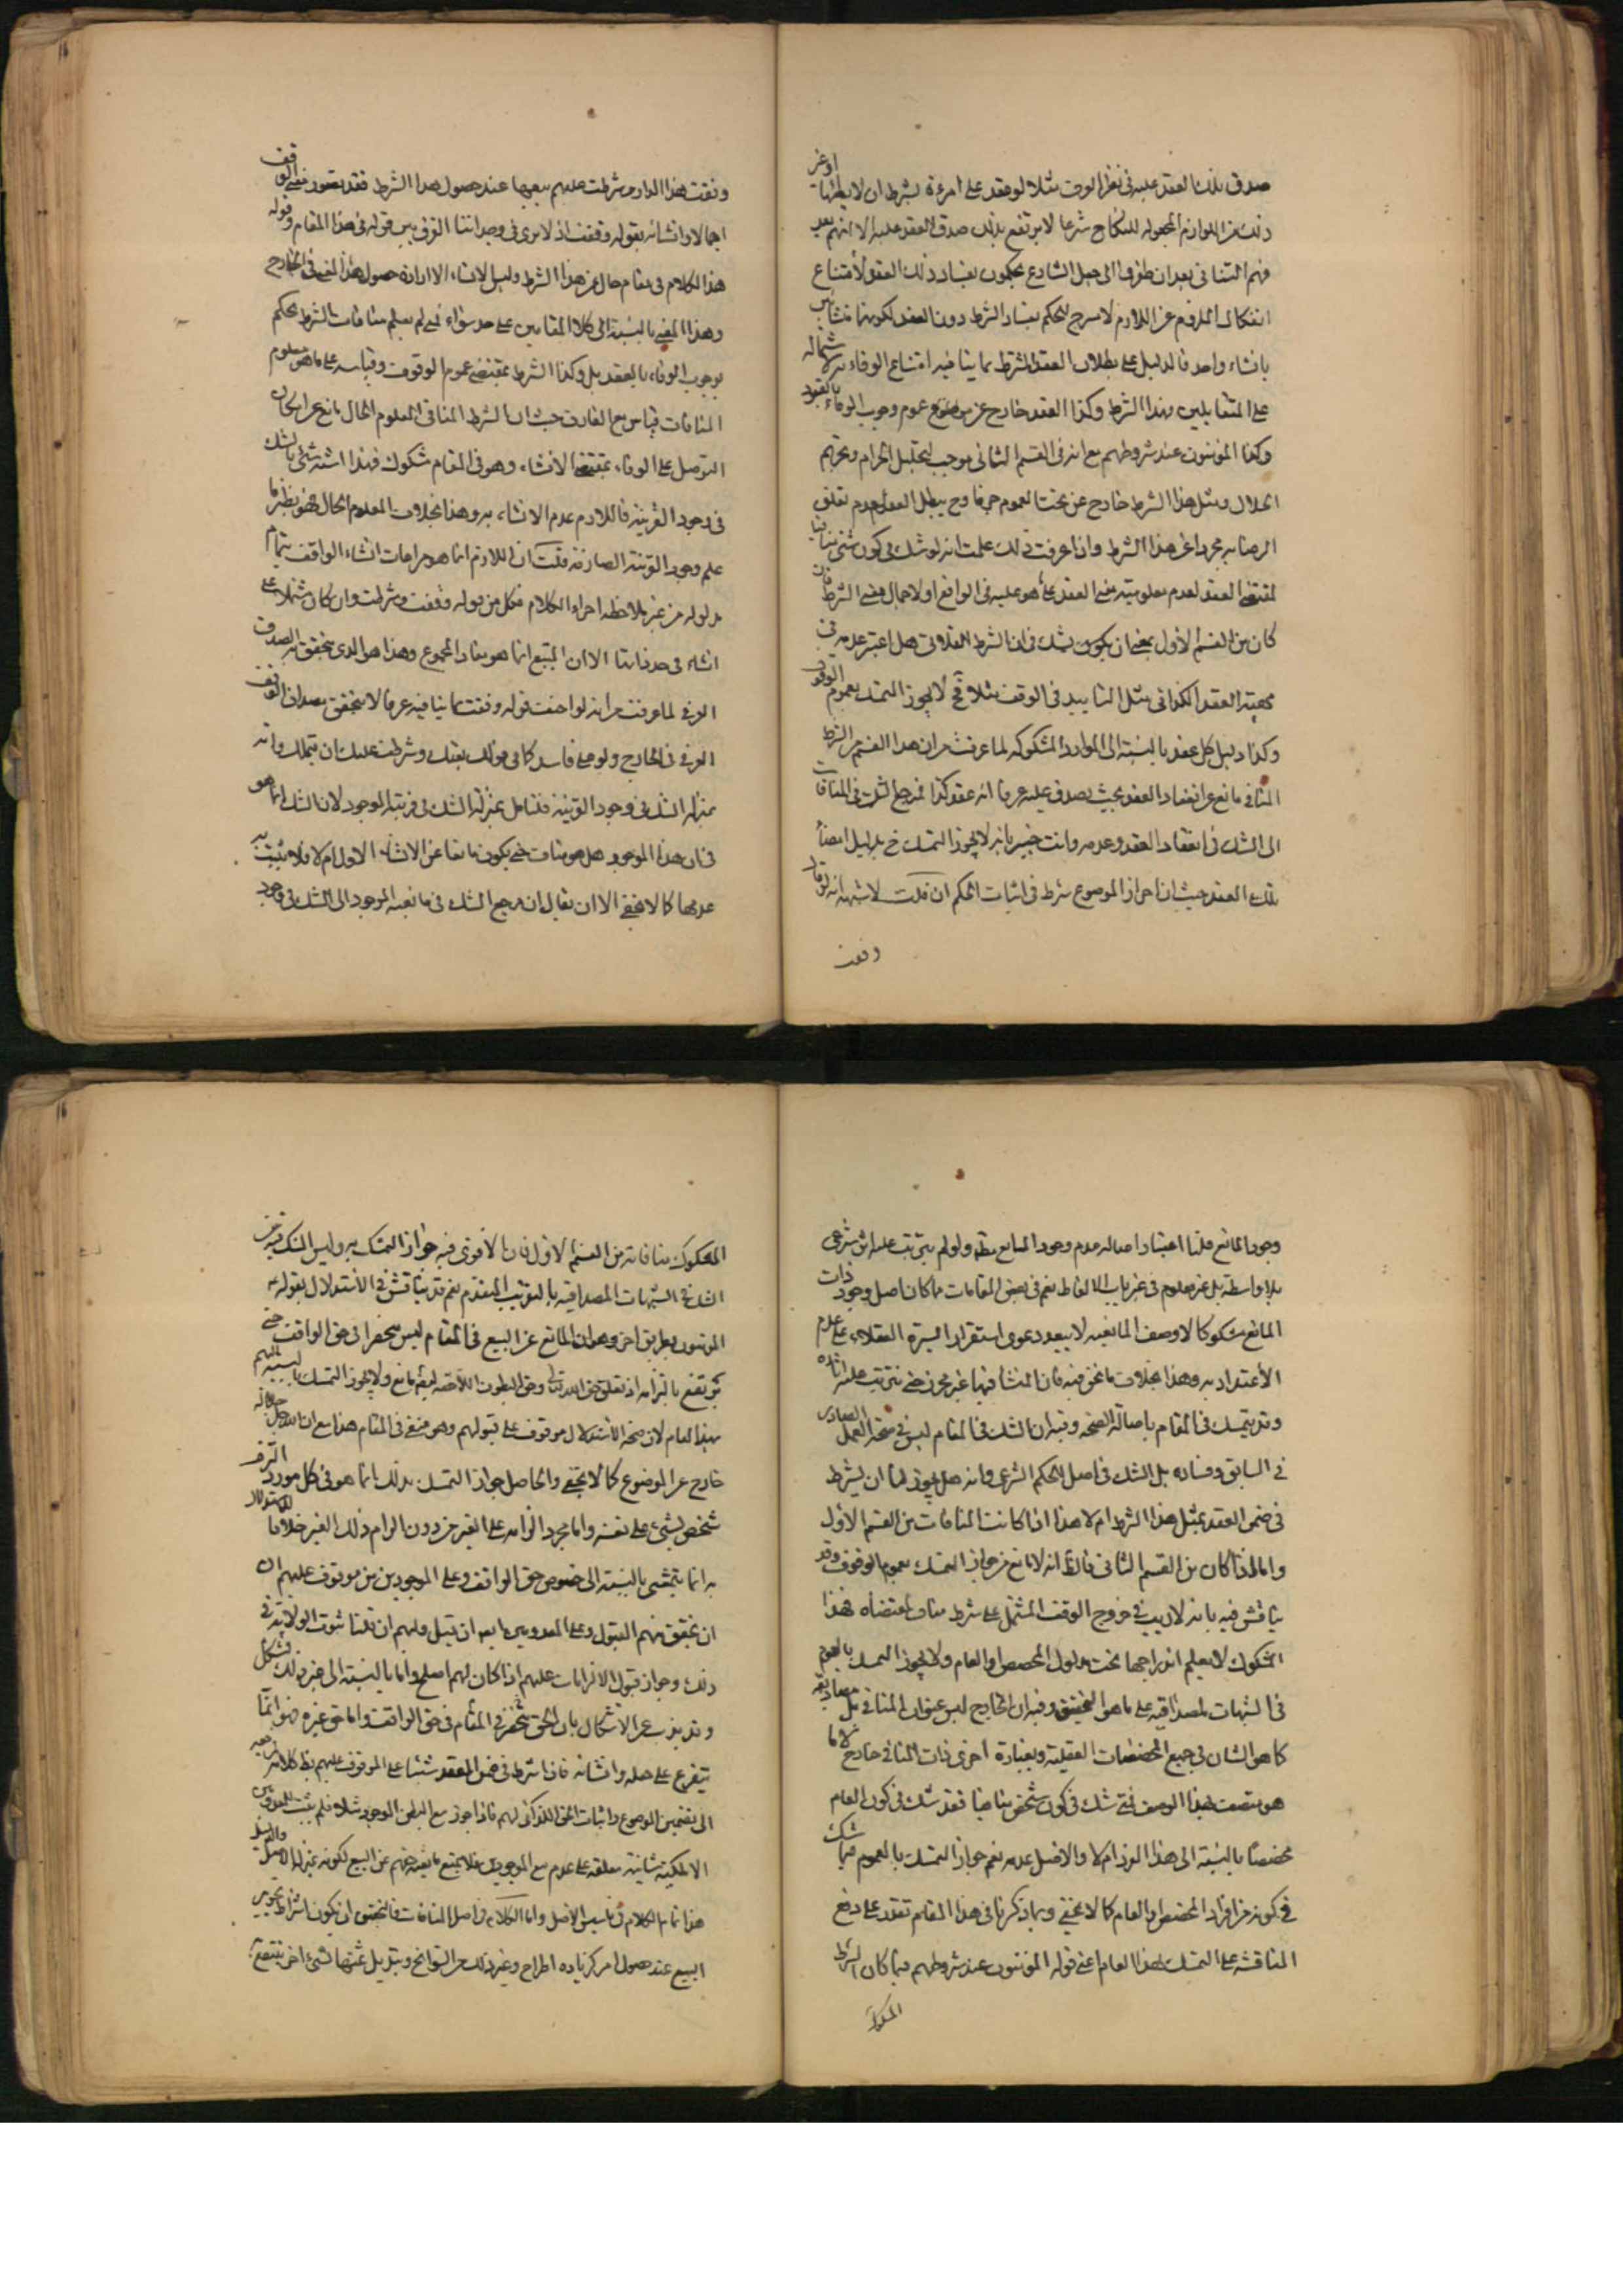 صدق ذلك العقد عليه فى نظر الوقف مثلا لو عقد على امرءة بشرط ان لا يطئها او غير
ذلك من اللوازم المجعوله للنكاح شرعا لا يرتفع بذلك صدق العقد عليه الا انهم بعد
فهم التنافى بعد ان نظروا الى جعل الشارع يحكمون بفساد ذلك العقد لامتناع
انفكاك الملزوم عن اللازم لا مسرح للحكم بفساد الشرط دون العقد لكونهما منشأين
بانشاء واحد فالدليل على بطلان العقد المشترط بما ينافيه امتناع الوفاء به
على المتقابلين بهذا الشرط وكذا العقد خارج عن موضوع عموم وجوب الوفاء بالعقود
وكذا المؤمنون عند شروطهم مع انه فى القسم الثانى موجب لتحليل الحرام وتحريم
الحلال ومثل هذا الشرط خارج عن تحت العموم جزما وح يبطل العقد لعدم تعلق
الرضا به مجردا عن هذا الشرط واذا عرفت ذلك علمت انه لو شك فى كون شئ منافيا
لمقتضى العقد لعدم معلومية معنى العقد على ما هو عليه فى الواقع او لاجمال معنى الشرط فان
كان من القسم الأول بمعنى ان يكون الشك فى ان الشرط الفلانى هل اعتبر عدمه فى
مهية العقد الكذائى مثل التابيد فى الوقف مثلا فح لا يجوز التمسك بعموم الوقوف
وكذا دليل كل عقد بالنسبة الى الموارد المشكوكه لما عرفت من ان هذا القسم من الشرط
المنافى مانع عن انعقاد العقد بحيث يصدق عليه عرفا انه عقد كذا فمرجع الشك فى المنافات
الى الشك فى انعقاد العقد وعدمه وانت خبير بانه لا يجوز التمسك ح بدليل امضاء
ذلك العقد حيث ان احراز الموضوع شرط فى اثبات الحكم ان قلت لا شبهة انه لو قال
وقفت
وقفت هذا الدار وشرطت عليهم بيعها عند حصول هذا الشرط فقد تصور معنى الوقف
اجمالا وانشائه بقوله وقفت اذ لا نرى فى وجداننا الفرق بين قوله فى هذا المقام وقوله
هذا الكلام فى مقام خال عن هذا الشرط وليس الانشاء الا ارادة حصول هذا المعنى فى الخارج
وهذا المعنى بالنسبة الى كلا المقامين على حد سواء فمتى لم يعلم منافات الشرط يحكم
بوجوب الوفاء بالعقد بل وكذا الشرط بمقتضى عموم الوقوف وقياسه على ما هو معلوم
المنافات قياس مع الفارق حيث ان الشرط المنافى المعلوم الحال مانع عن امكان
التوصل على الوفاء بمقتضى الانشاء وهو فى المقام مشكوك فهذا اشبه شئ بالشك
فى وجود القرينة فاللازم عدم الاعتناء به وهذا بخلاف المعلوم الحال فهو نظير ما
علم وجود القرينة الصارفة قلت ان اللازم انما هو مراعات انشاء الواقف بتمام
مدلوله من غير ملاحظة اجزاء الكلام فكل من قوله وقفت وشرطت وان كان مشتملا على
انشاء فى حد ذاتها الا ان المتبع انما هو مفاد المجموع وهذا هو الذى يتحقق به الصدق
العرفى لما عرفت من انه لو اضعف قوله وقفت بما ينافيه عرفا لا يتحقق مصداق الوقف
العرفى فى الخارج ولو على فاسد كما فى قولك بعتك وشرطت عليك ان تتملك وانه
بمنزلة الشك فى وجود القرينة فتامل بمنزلة الشك فى قرينية الموجود لان الشك انما هو
فى ان هذا الموجود هل هو مناف حتى يكون مانعا عن الانشاء الاول ام لا فلا يثبت به
عدمها كما لا يخفى الا ان يقال ان مرجع الشك فى مانعية الموجود الى الشك فى وجود
وجود المانع قلنا اعتبار اصالة عدم وجود المانع مطلقا ولو لم يترتب عليه اثر شرعى
بلا واسطة بل غير معلوم فى غير باب الالفاظ نعم فى بعض المقامات مما كان اصل وجود ذات
المانع مشكوكا لا وصف المانعية لا يبعد دعوى استقرار السيرة العقلاء على عدم
الأعتداد به وهذا بخلاف ما نحن فيه فان المنشأ فيها غير محرز حتى يترتب عليه اثاره
وقد يتمسك فى المقام باصالة الصحة وفيه ان الشك فى المقام ليس فى صحة العمل الصادر
فى السابق وفساده بل الشك فى اصل الحكم الشرعى وانه هل يجوز لنا ان يشترط
فى ضمن العقد بمثل هذا الشرط ام لا هذا اذا كانت المنافات من القسم الأول
واما اذا كان من القسم الثانى فالظ انه لا مانع من جواز التمسك بعموم الوقوف وقد
يناقش فيه بانه لا ريب فى خروج الوقف المشتمل على شرط مناف لمقتضاه فهذا
المشكوك لا يعلم اندراجها تحت مدلول المخصص او العام ولا يجوز التمسك بالعموم
فى الشبهات المصداقيه على ما هو التحقيق وفيه ان الخارج ليس عنوان المنافى بل مصاديقه
كما هو الشان فى جميع المخصصات العقلية وبعبارة اخرى ذات المنافى خارج لا ما
هو متصف بهذا الوصف فمتى شك فى كون شخص منافيا فقد شك فى كون العام
مخصصا بالنسبة الى هذا الفرد ام لا والاصل عدمه نعم جواز التمسك بالعموم فيما شك
فى كونه من افراد المخصص او العام كما لا يخفى وبما ذكرنا فى هذا المقام تقدر على دفع
المناقشه على التمسك بهذا العام اعنى قوله المؤمنون عند شروطهم فيما كان الشرط
المشكوك
المشكوك منافاته من القسم الاول فان الاقوى فيه جواز التمسك به وليس التمسك فيه من
التمسك فى الشبهات المصداقيه بالتقريب المتقدم نعم قد يناقش فى الاستدلال بقوله
المؤمنون بطريق اخر وهو ان المانع عن البيع فى المقام ليس منحصرا فى حق الواقف حتى
يرتفع بالتزامه اذ تعلق حق الله تعالى وحق البطون اللاحقة ايضا مانع ولا يجوز التمسك بالنسبة اليهم
بهذا العام لان صحة الاستدلال موقوف على قبولهم وهو منتفى فى المقام هذا مع ان الله جل جلاله
خارج عن الموضوع كما لا يخفى والحاصل جواز التمسك بذلك انما هو فى كل مورد التزم
شخص بشئ على نفسه واما مجرد الزامه على الغير من دون الزام ذلك الغير فلا فالاستدلال
به انما يتمشى بالنسبة الى خصوص حق الواقف وعلى الموجودين من موقوف عليهم ان
ان تحقق منهم القبول وعلى المعدومين ايضا ان قبل وليهم ان قلنا ثبوت الولاية فى
ذلك وجواز قبول الالزامات عليهم اذا كان لهم اصلح واما بالنسبة الى غير ذلك فمشكل
وقد يذب عن الاشكال بان الحق منحصر فى المقام فى حق الواقف واما حق غيره فهو انما
يتفرع على جعله وانشائه فاذا اشترط فى ضمن العقد شيئا على الموقوف عليهم
الى تضمين الموضوع واثبات الحق الكذائى لهم فاذا جوز بيع البطن الموجود مثلا فلم يثبت للمعدومين
الا ملكية شانية معلقة على عدم بيع الموجودين فلا يجتمع مانعية حقهم عن البيع لكونه بمنزلة الاصيل
هذا تمام الكلام فى تاسيس الاصل واما الكلام فى اصل المنافات فالتحقيق ان يكون اشتراط تجويز
البيع عند حصول امر كزياده الخراج وغير ذلك من السوانح وتبديل ثمنها بشئ اخر ينتفع